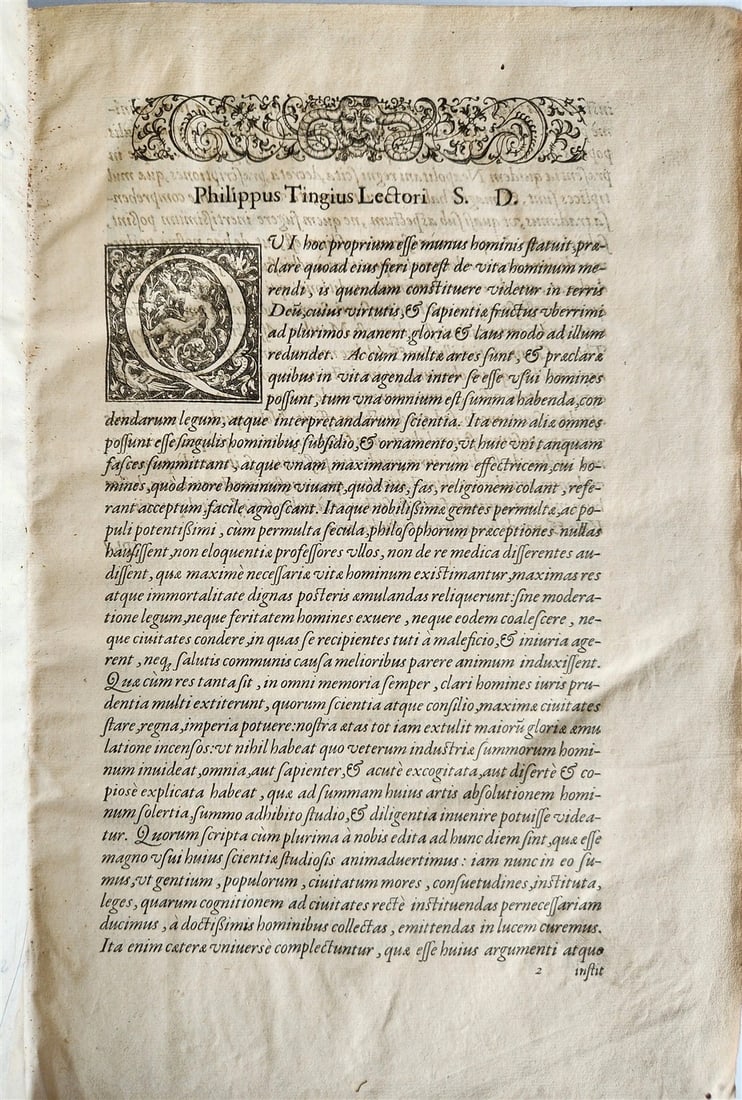 Philippus Tingius Lectori S. D.
QVI hoc proprium esse munus hominis statuit, præ-
clare quoad eius fieri potest de vita hominum me-
rendi, is quendam constituere videtur in terris
Deũ, cuius virtutis, & sapientiæ fructus vberrimi
ad plurimos manent, gloria & laus modò ad illum
redundet. Ac cùm multæ artes sunt, & præclaræ
quibus in vita agenda inter se esse vsui homines
possunt, tum vna omnium est summa habenda, con
dendarum legum, atque interpretandarum scientia. Ita enim aliæ omnes
possunt esse singulis hominibus subsidio, & ornamento, vt huic vni tanquam
fasces summittant, atque vnam maximarum rerum effectricem, cui ho-
mines, quòd more hominum viuant, quòd ius, fas, religionem colant, refe-
rant acceptum, facile agnoscant. Itaque nobilissimæ gentes permultæ, ac po-
puli potentissimi, cùm permulta secula, philosophorum præceptiones nullas
hausissent, non eloquentiæ professores vllos, non de re medica disserentes au-
dissent, quæ maximè necessariæ vitæ hominum existimantur, maximas res
atque immortalitate dignas posteris æmulandas reliquerunt: sine modera-
tione legum, neque feritatem homines exuere, neque eodem coalescere, ne-
que ciuitates condere, in quas se recipientes tuti à maleficio, & iniuria age-
rent, neq; salutis communis causa melioribus parere animum induxissent.
Quæ cùm res tanta sit, in omni memoria semper, clari homines iuris pru-
dentia multi extiterunt, quorum scientia atque consilio, maximæ ciuitates
stare, regna, imperia potuere: nostra ætas tot iam extulit maiorũ gloriæ æmu
latione incensos: vt nihil habeat quo veterum industriæ summorum homi-
num inuideat, omnia, aut sapienter, & acutè excogitata, aut disertè & co-
piosè explicata habeat, quæ ad summam huius artis absolutionem homi-
num solertia, summo adhibito studio, & diligentia inuenire potuisse videa-
tur. Quorum scripta cùm plurima à nobis edita ad hunc diem sint, quæ esse
magno vsui huius scientiæ studiosis animaduertimus: iam nunc in eo su-
mus, vt gentium, populorum, ciuitatum mores, consuetudines, instituta,
leges, quarum cognitionem ad ciuitates rectè instituendas pernecessariam
ducimus, à doctissimis hominibus collectas, emittendas in lucem curemus.
Ita enim cæteræ vniuersè complectuntur, quæ esse huius argumenti atque
2 instit